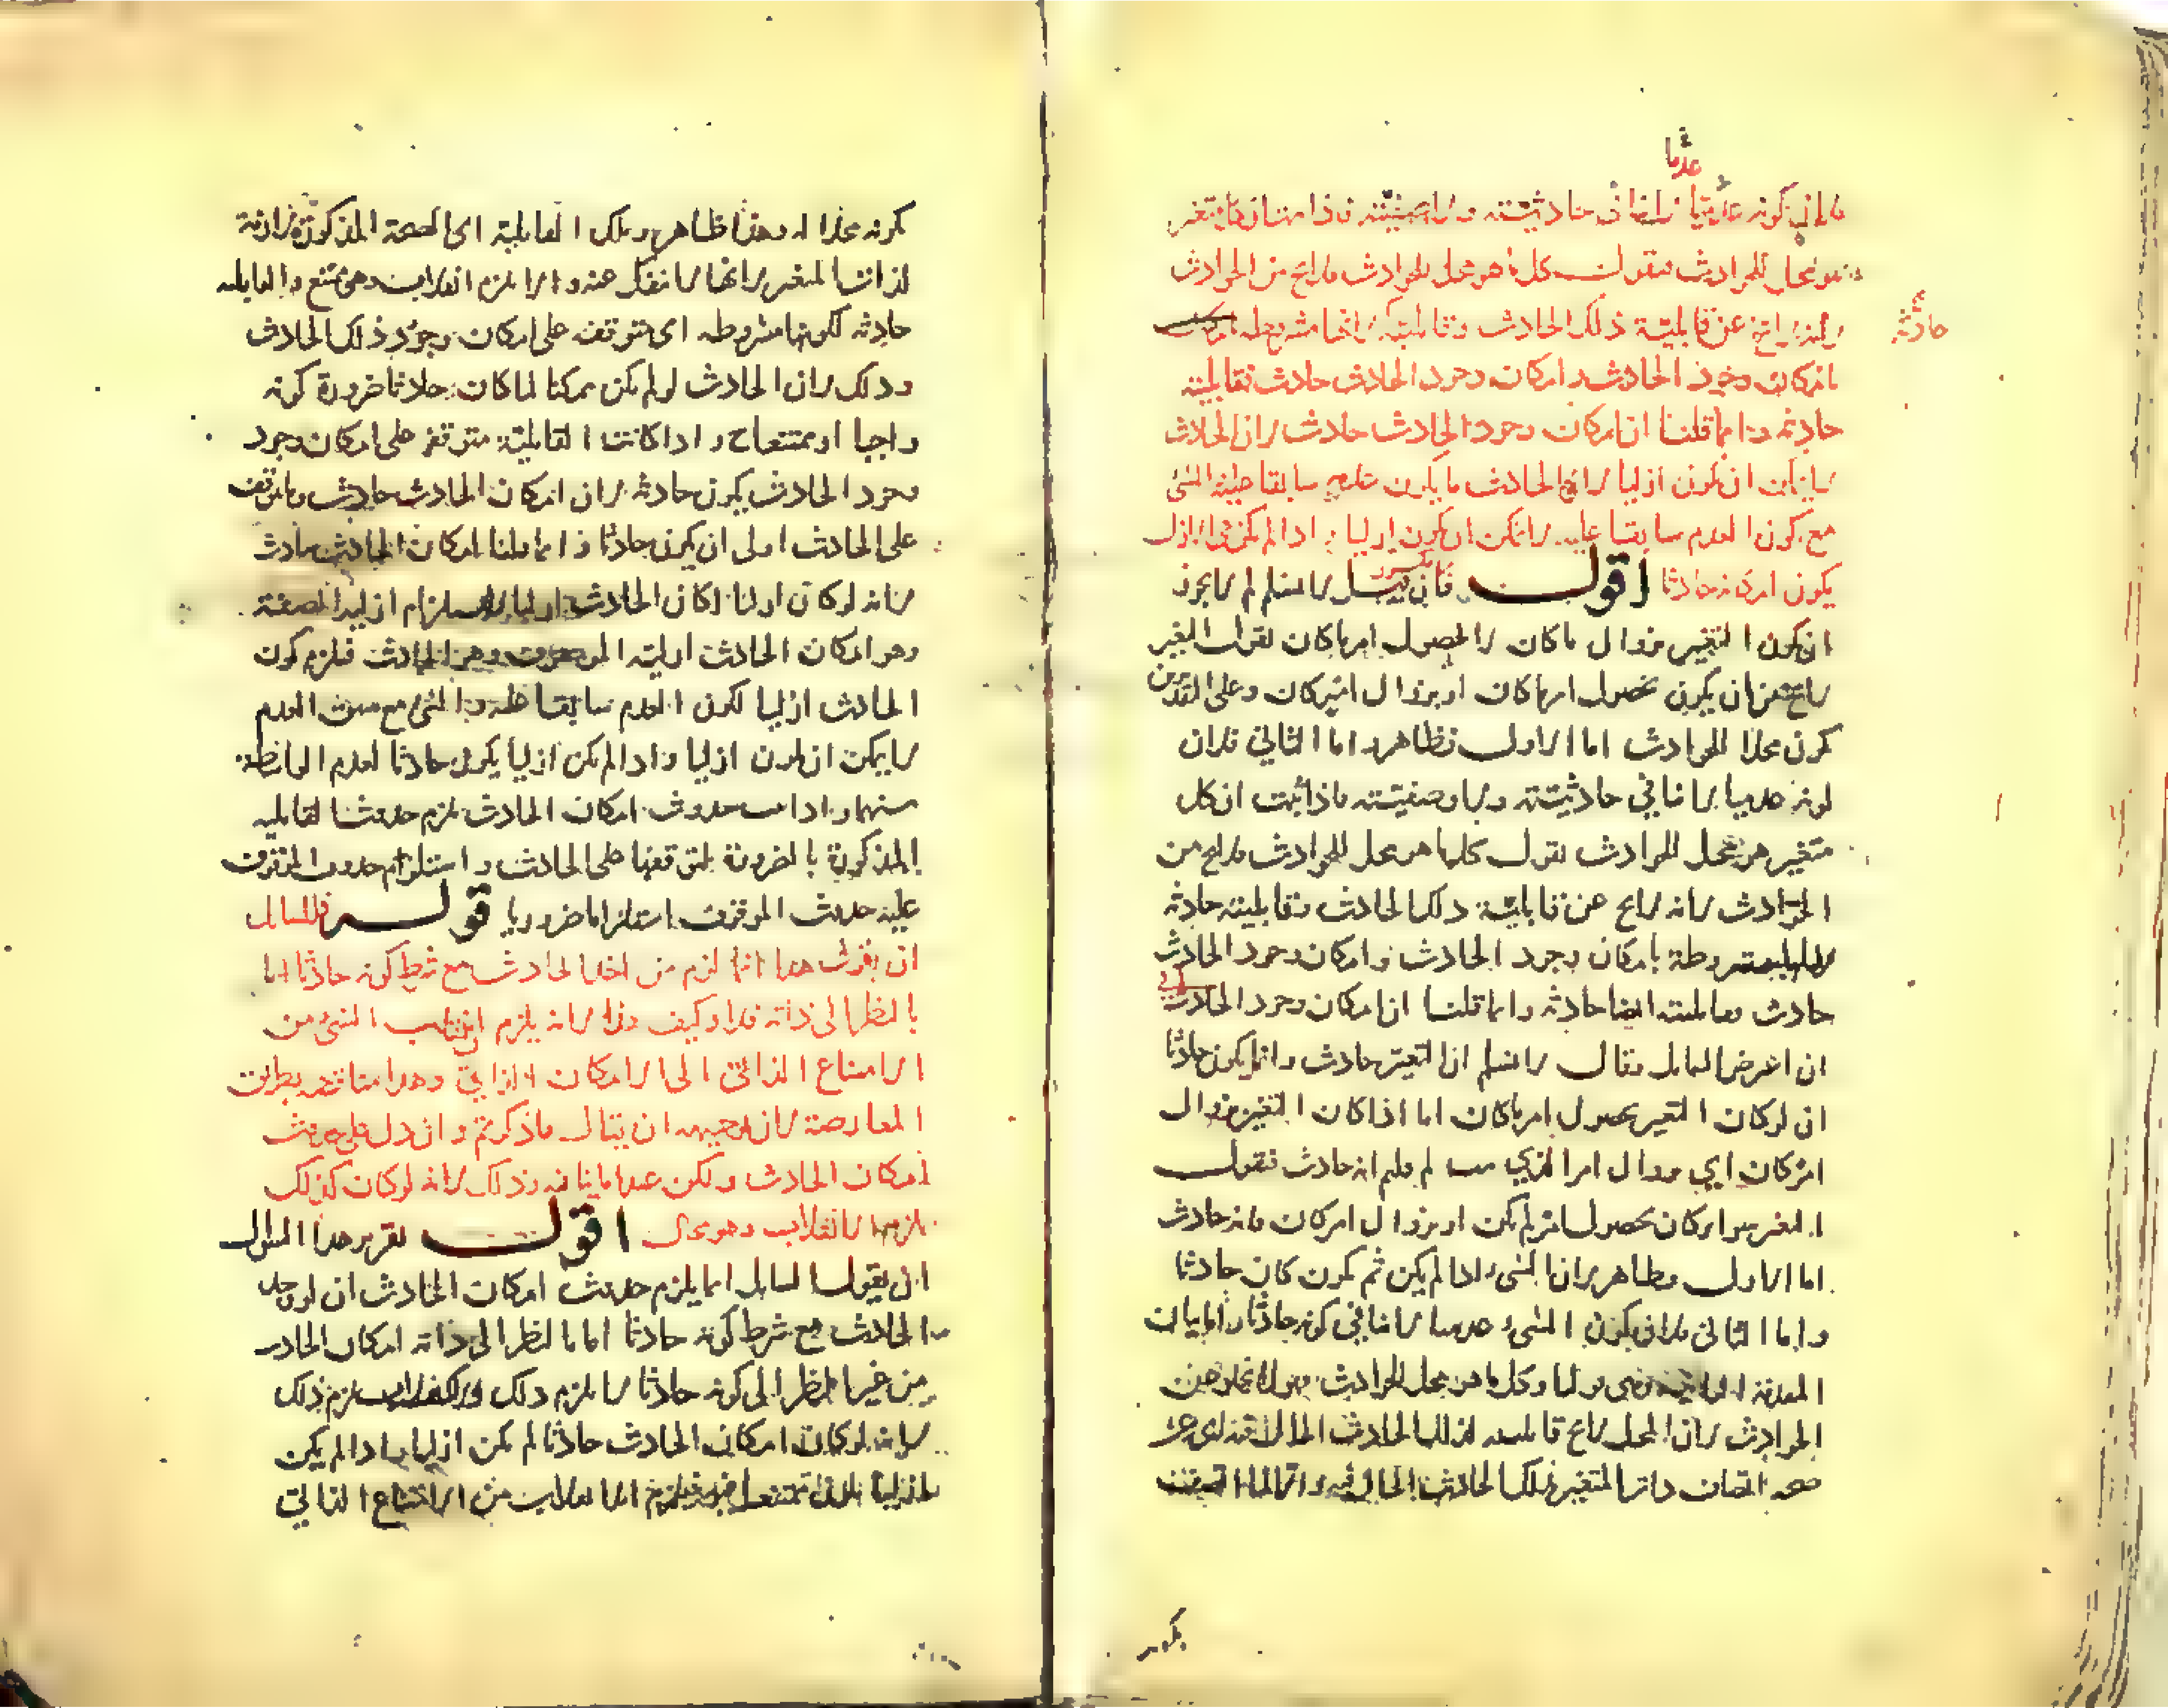 عدميا
كونه عدميا لا ينافي حادثيته ولا وصفيته فاذا كل متغير
محل للحوادث فنقول كل ما هو محل للحوادث لا يخ من الحوادث
لانه لا يخ عن قابلية ذلك الحادث وقابليته لانها مشروطه
حادثة
بامكان وجود الحادث وامكان وجود الحادث حادث فقابليته
حادثه وانما قلنا ان امكان وجود الحادث حادث لان الحادث
لا يمكن ان يكون ازليا لان الحادث ما يكون عدمه سابقا عليه والشئ
مع كون العدم سابقا عليه لا يمكن ان يكون ازليا واذا لم يكن في الازل
يكون امكانه حادثا اقول فان قيل لا نسلم لم لا يجوز
ان يكون التغير بزوال ما كان لا بحصول امر ما كان نقول التغير
لا يخ من ان يكون بحصول امر ما كان او بزوال امر كان وعلى التقديرين
يكون محلا للحوادث اما الاول فظاهر واما الثاني فلان
كونه عدميا لا ينافي حادثيته ولا وصفيته فاذا ثبت ان كل
متغير هو محل للحوادث نقول كل ما هو محل للحوادث لا يخ من
الحوادث لانه لا يخ عن قابلية ذلك الحادث وقابليته حادثه
لان القابلية مشروطة بامكان وجود الحادث وامكان وجود الحادث
حادث فقابليته ايضا حادثه وانما قلنا ان امكان وجود الحادث
ان اعترض السائل وقال لا نسلم ان التغير حادث وانما يكون حادثا
ان لو كان التغير بحصول امر ما كان اما اذا كان التغير بزوال
امر كان اي بزوال امر ازلي لم قلتم انه حادث فنقول
التغير سوا كان بحصول امر لم يكن او بزوال امر كان فانه حادث
اما الاول فظاهر لان الشئ اذا لم يكن ثم يكون كان حادثا
واما الثاني فلان كون الشئ عدميا لا ينافي كونه حادثا واما بيان
المقدمة الثانية وهي قولنا وكل ما هو محل للحوادث فهو لا يخلو عن
الحوادث لان المحل لا يخ قابليته لذلك الحادث
صحه اتصاف ذات المتغير بذلك الحادث الحال فيه
بكونه
كونه محلا له وهذا ظاهر وتلك القابلية اي الصحة المذكورة لازمة
لذات المتغير لانها لا تنفك عنه والا يلزم الانقلاب وهو ممتنع والقابليه
حادثه لكونها مشروطه اي متوقفه على امكان وجود ذلك الحادث
وذلك لان الحادث لو لم يكن ممكنا لما كان حادثا ضرورة كونه
واجبا او ممتنعا ح واذا كانت القابلية متوقفه على امكان وجود
وجود الحادث يكون حادثه لان امكان الحادث حادث وما يتوقف
على الحادث اولى ان يكون حادثا وانما قلنا امكان الحادث حادث
لانه لو كان ازليا لكان الحادث ازليا لاستلزام ازلية الصفة
وهو امكان الحادث ازلية الموصوف وهو الحادث فيلزم كون
الحادث ازليا لكون العدم سابقا عليه والشئ مع سبق العدم
لا يمكن ان يكون ازليا واذا لم يكن ازليا يكون حادثا لعدم الواسطة
بينهما واذا ثبت حدوث امكان الحادث يلزم حدوث القابليه
المذكورة بالضرورة لتوقفها على الحادث واستلزام حدوث الموقوف
عليه حدوث الموقوف استلزاما ضروريا قوله فللسائل
ان يقول هذا انما لزم من اخذ الحادث مع شرط كونه حادثا اما
بالنظر الى ذاته فلا وكيف وذا لانه يلزم انقلاب الشئ من
الامتناع الذاتي الى الامكان الذاتي وهذا مناقضه بطريق
المعارضة لان توجيهه ان يقال ما ذكرتم وان دل على حدوث
امكان الحادث ولكن عندنا ما ينافيه وذلك لانه لو كان كذلك
يلزم الانقلاب وهو محال اقول تقرير هذا السؤال
ان يقول السائل انما يلزم حدوث امكان الحادث ان لو اخذ
الحادث مع شرط كونه حادثا اما بالنظر الى ذاته امكان الحادث
من غير النظر الى كونه حادثا لا يلزم ذلك وكيف يلزم ذلك
لانه لو كان امكان الحادث حادثا لم يكن ازليا واذا لم يكن
ازليا كان ممتنعا فيلزم الانقلاب من الامتناع الذاتي